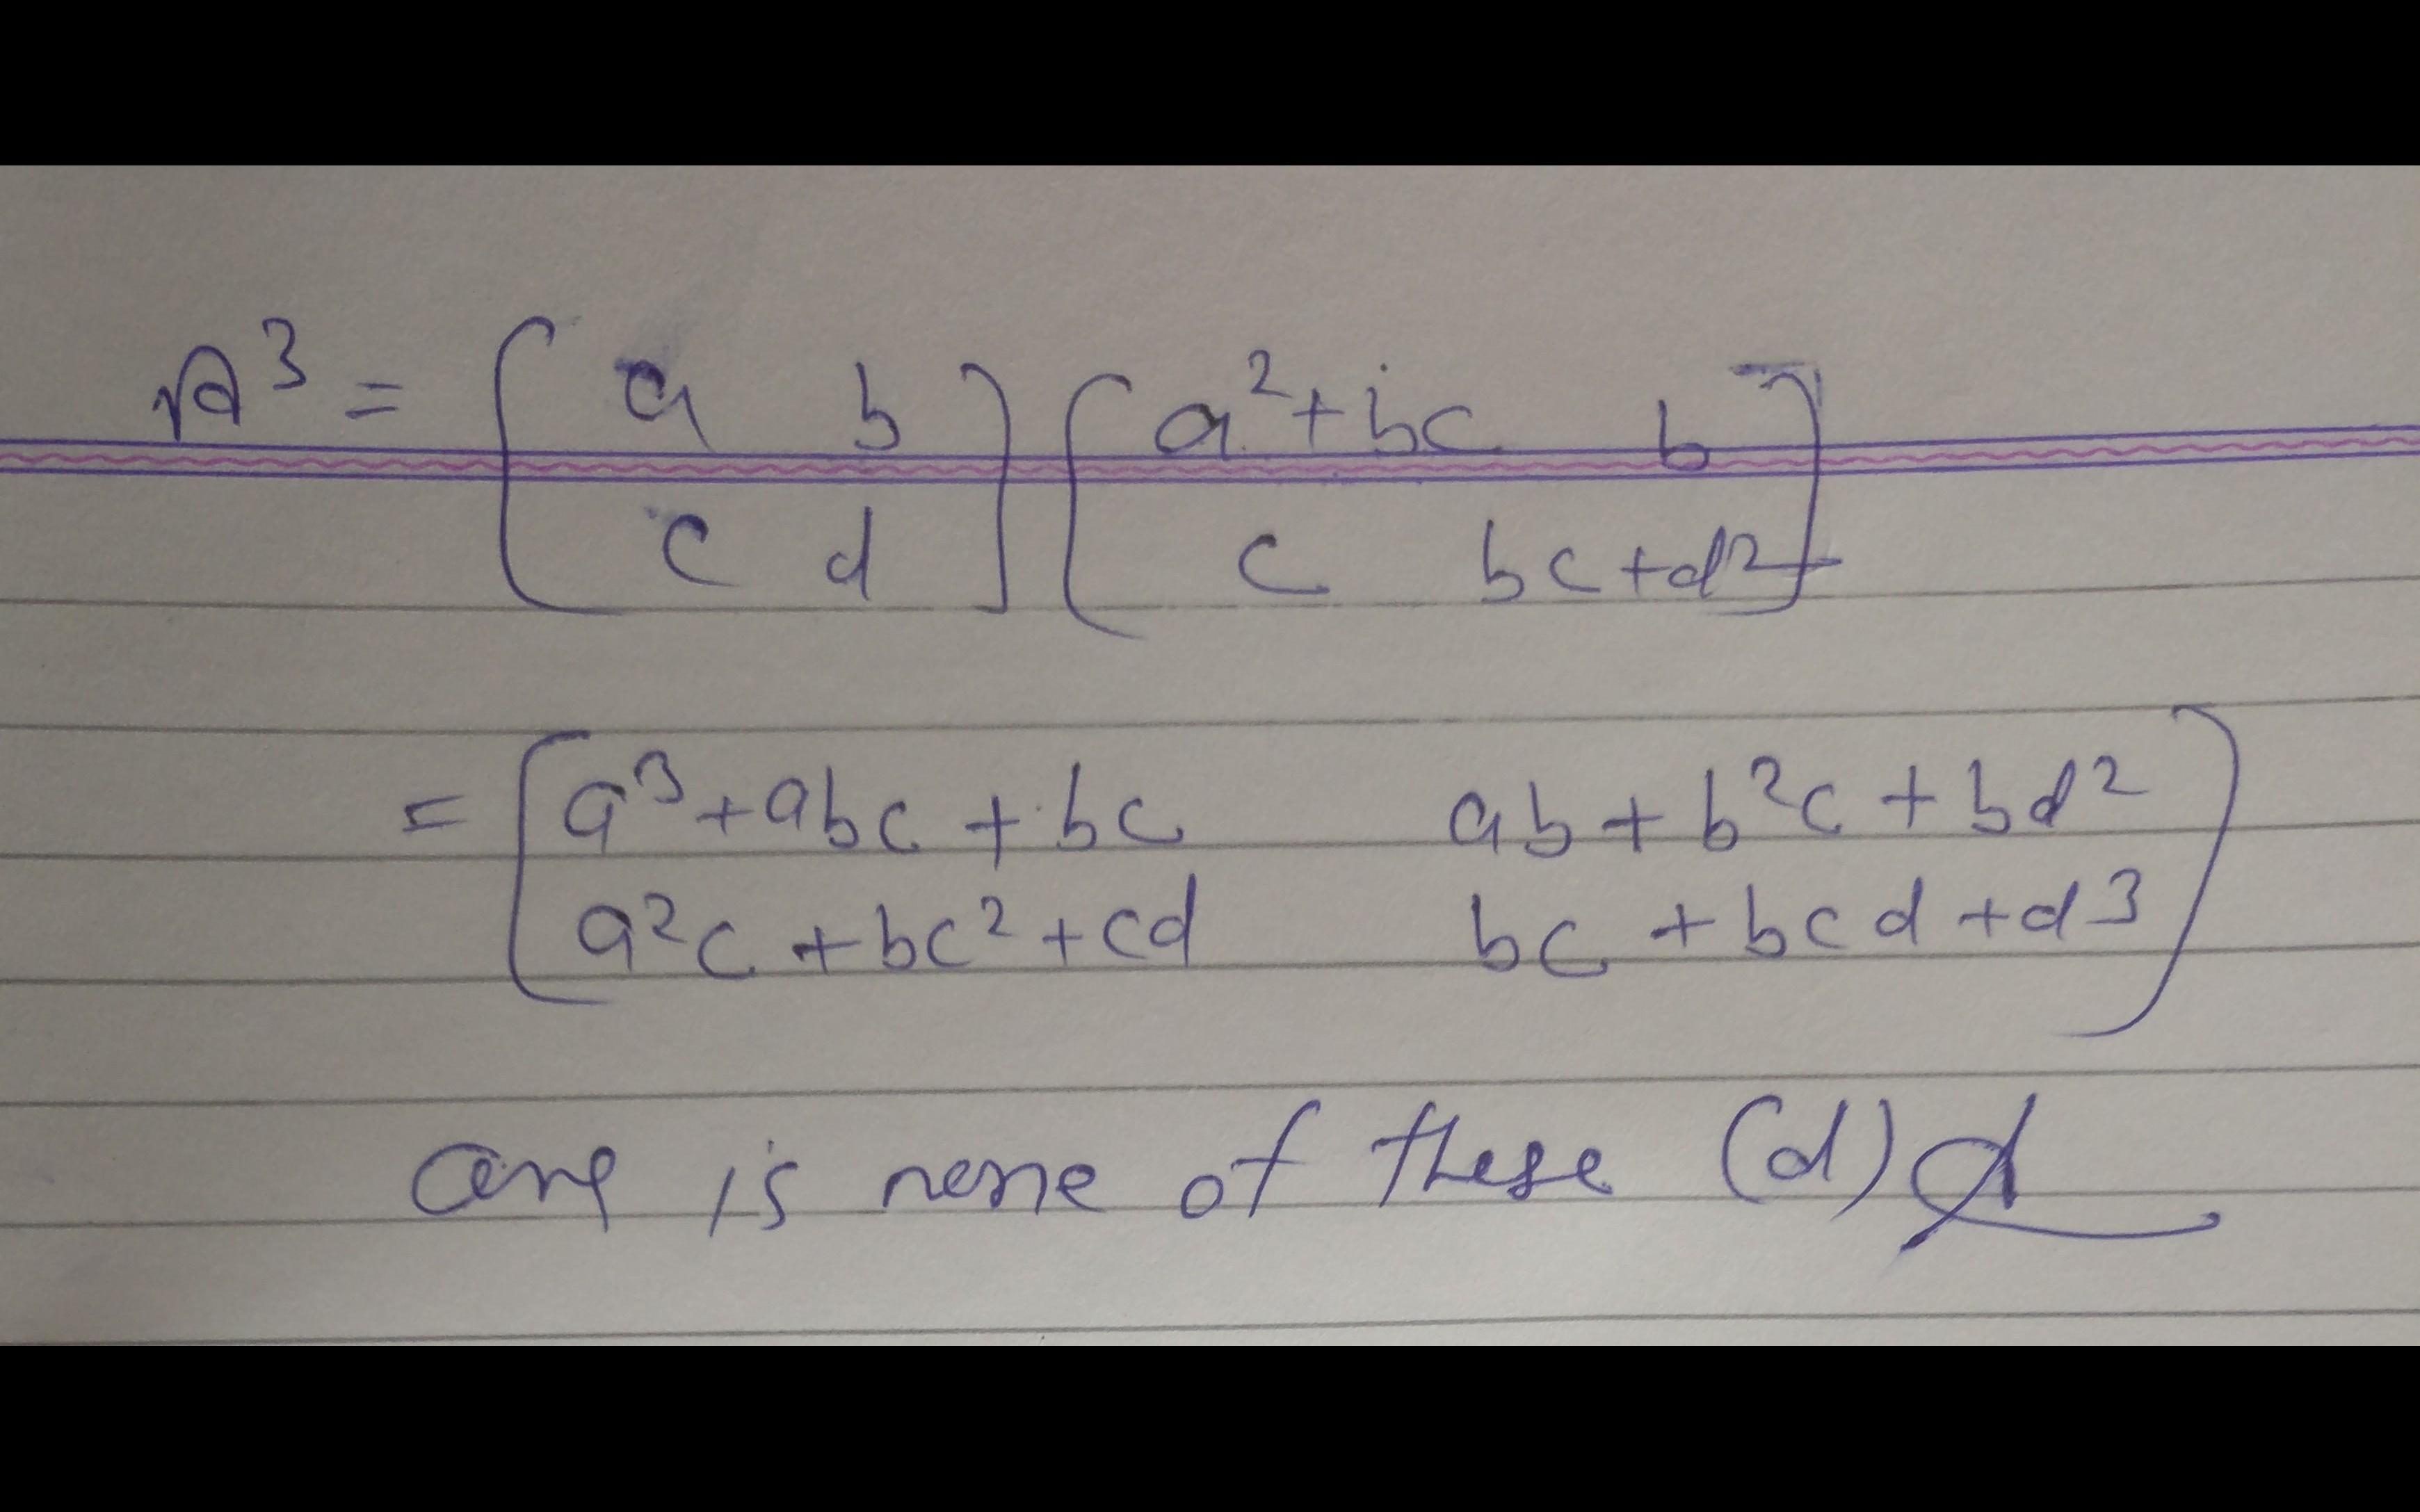 A³ = [ a b ] [ a²+bc b ]
[ c d ] [ c bc+d² ]
= [ a³+abc+bc ab+b²c+bd² ]
[ a²c+bc²+cd bc+bcd+d³ ]
ans is none of these (d)